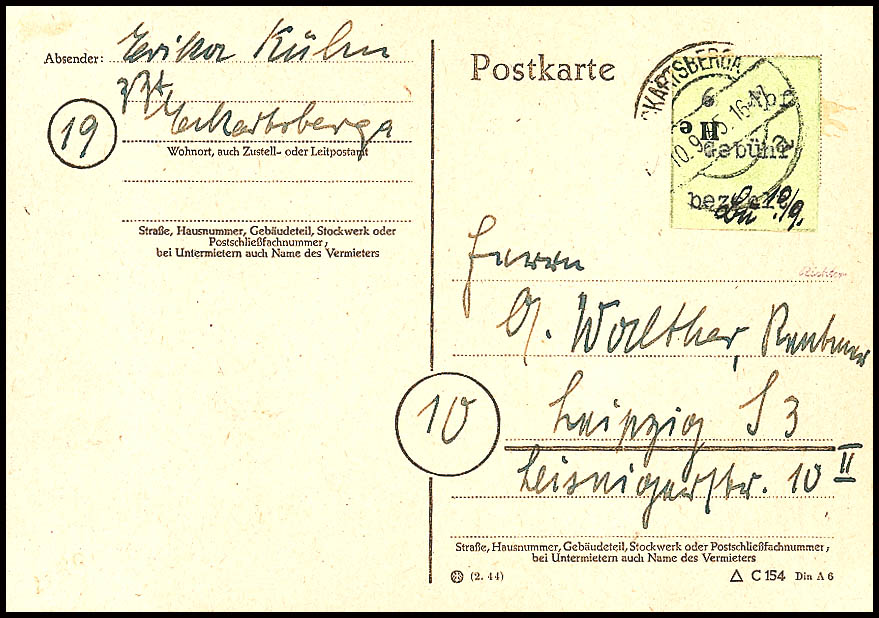 Absender: Erika Kühn
zZt.
19
Eckartsberga
Wohnort, auch Zustell- oder Leitpostamt
Straße, Hausnummer, Gebäudeteil, Stockwerk oder
Postschließfachnummer;
bei Untermietern auch Name des Vermieters
Postkarte
CKARTSBERGA
10.9.45. 16-17
a
6 Rpf
He
Gebühr
bezahlt
10/9.
Richter
Herrn
A. Walther, Rentner
10
Leipzig S 3
Leisnigerstr. 10 II
Straße, Hausnummer, Gebäudeteil, Stockwerk oder Postschließfachnummer;
bei Untermietern auch Name des Vermieters
(2. 44)
C 154 Din A 6